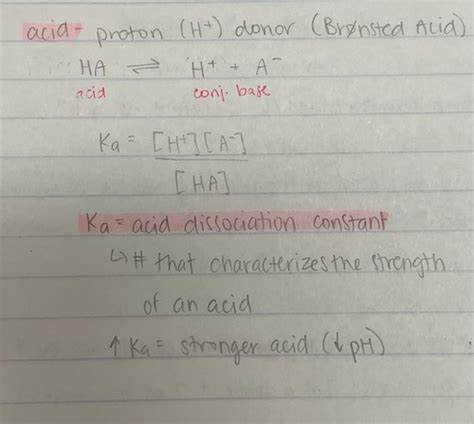 acid - proton (H⁺) donor (Brønsted Acid)
HA ⇌ H⁺ + A⁻
acid conj. base
Ka = [H⁺][A⁻]
[HA]
Ka = acid dissociation constant
↳ # that characterizes the strength
of an acid
↑ Ka = stronger acid (↓ pH)